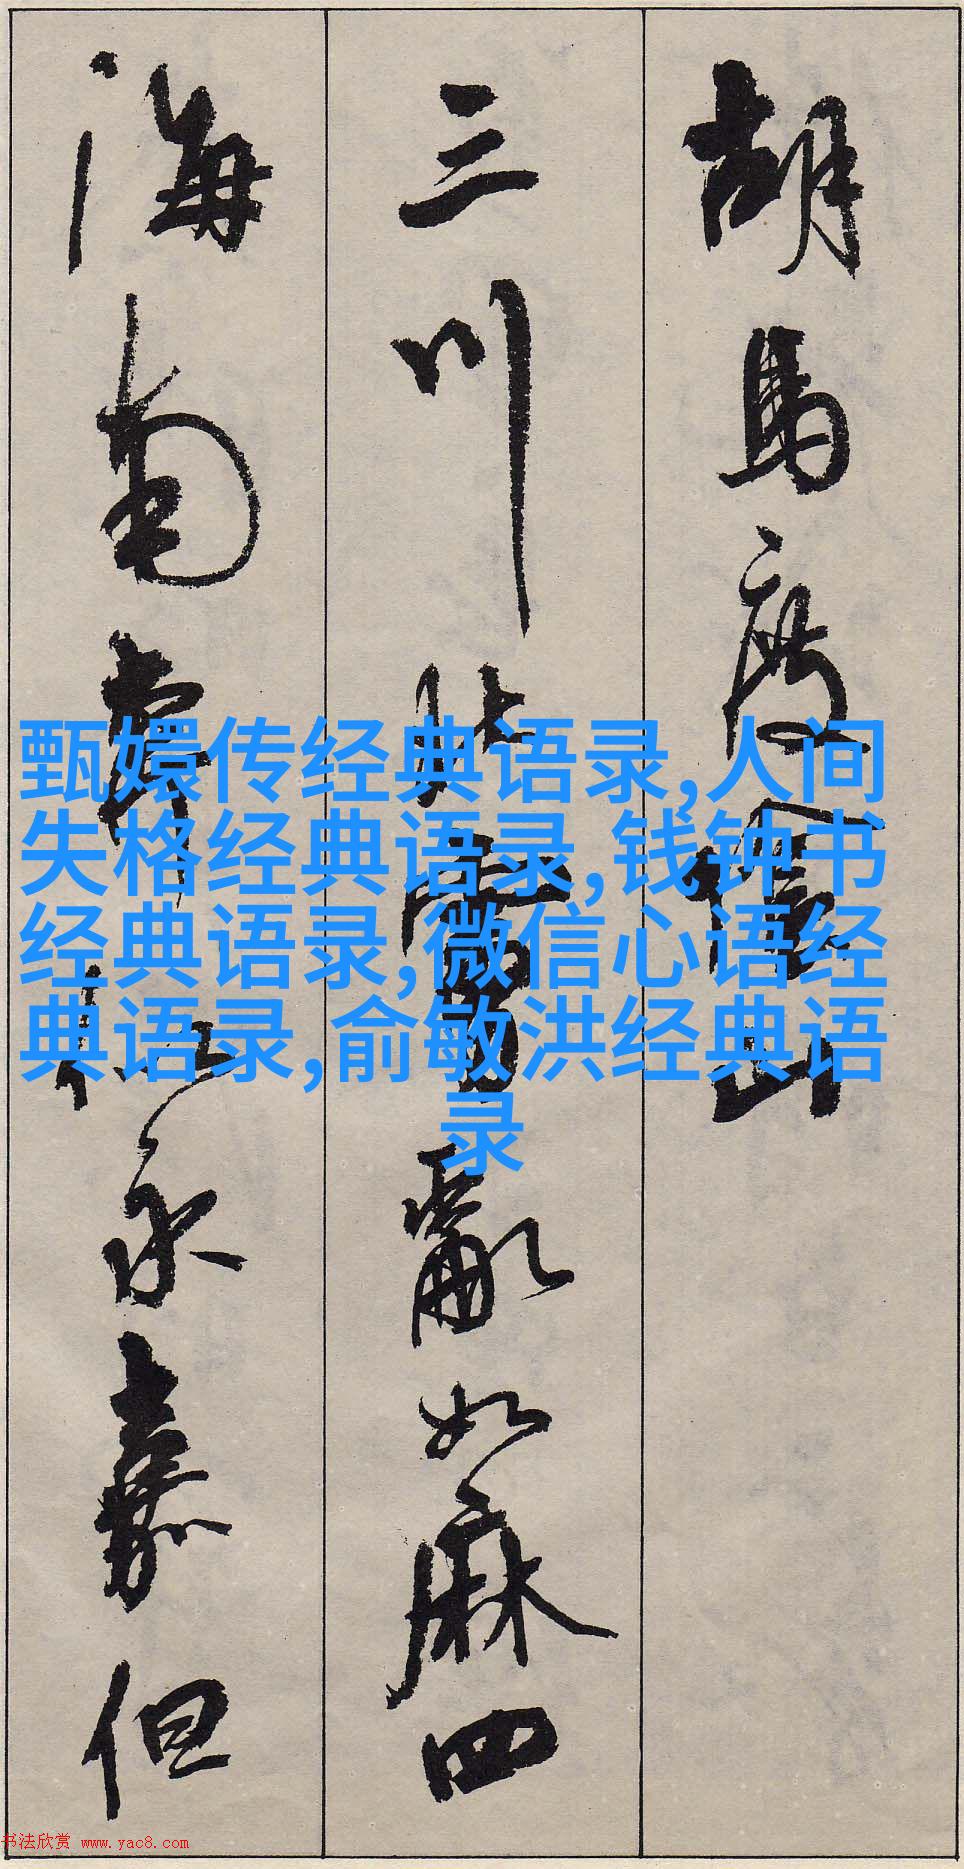 胡馬度陰山
三川北虜亂如麻四
海南奔似永嘉但
甄嬛传经典语录,人间
失格经典语录,钱钟书
经典语录,微信心语经
典语录,俞敏洪经典语
录
书法欣赏 www.yac8.com